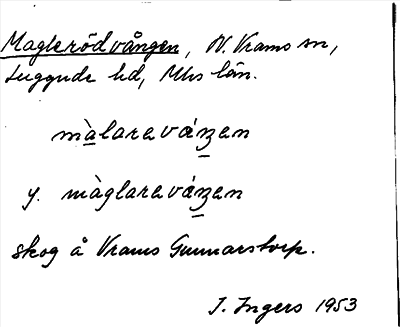 Maglerödvången, N. Vrams sn,
Luggude hd, Mhs län.
màlareváŋen
y. màglareváŋen
skog å Vrams Gunnarstorp.
I. Ingers 1953